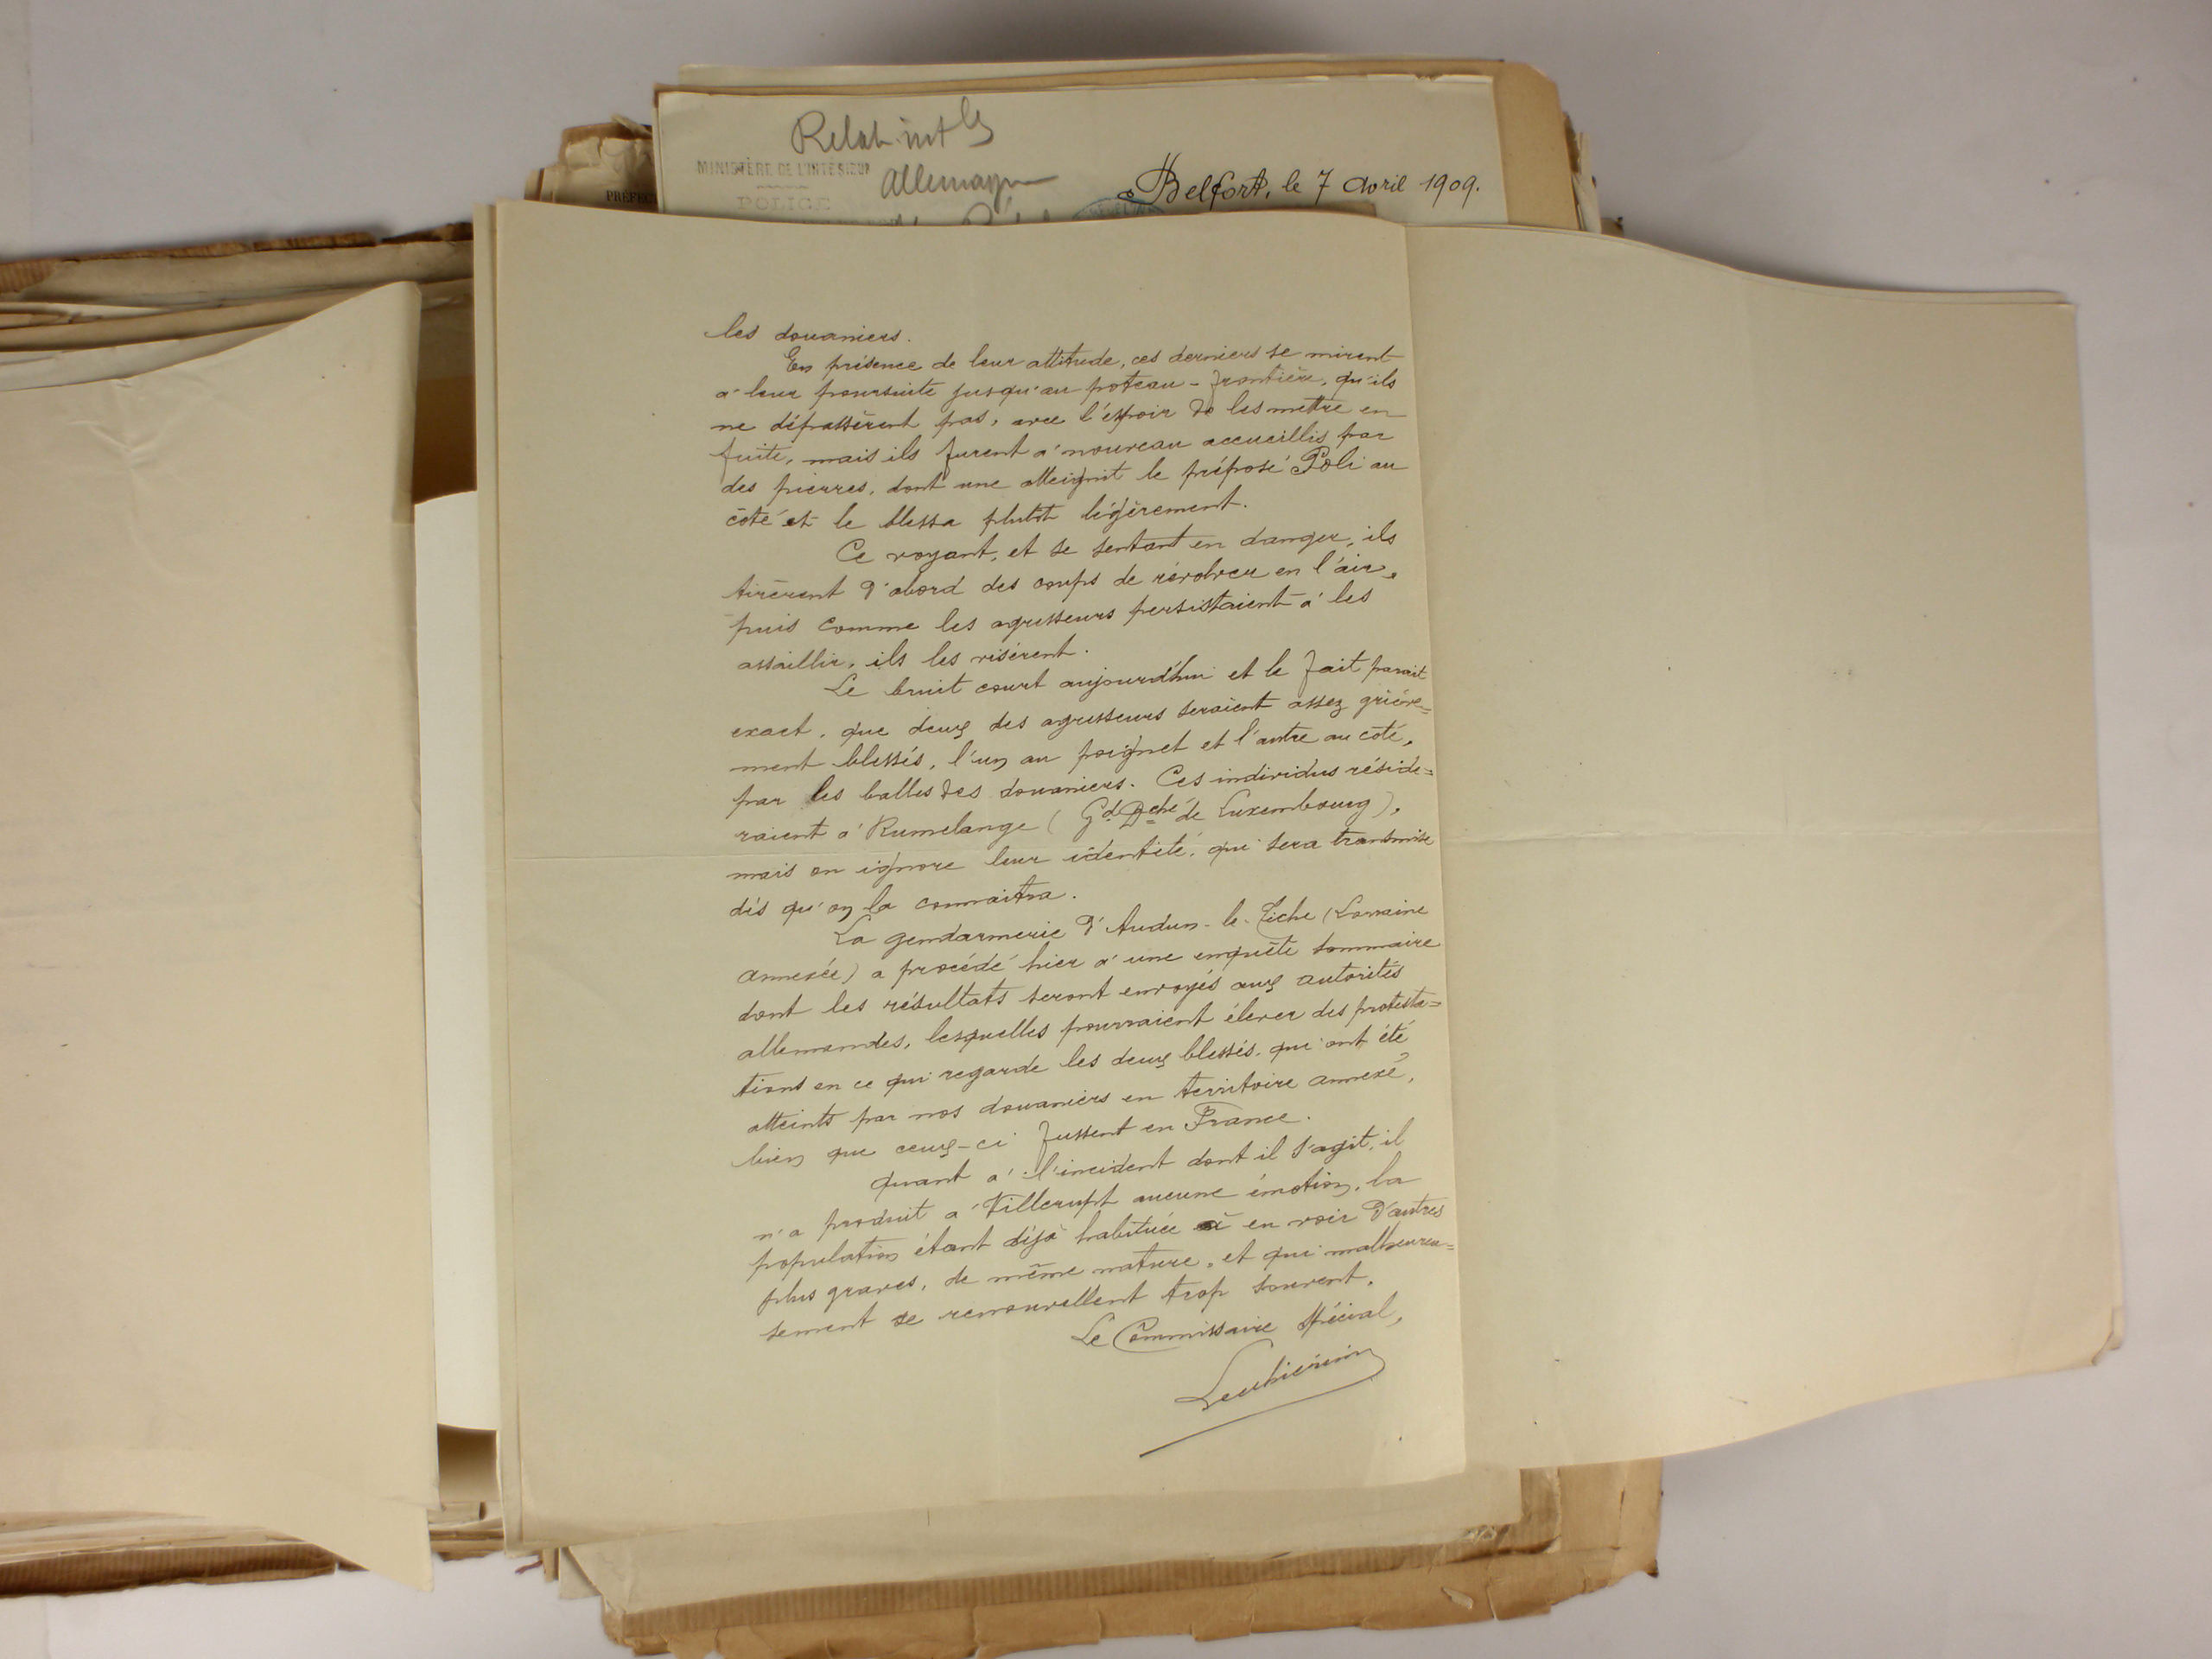 Relat. int les
MINISTÈRE DE L'INTÉRIEUR
Allemagne
PREFEC
POLICE
Belfort, le 7 Avril 1909.
les douaniers.
En présence de leur attitude, ces derniers se mirent
à leur poursuite jusqu'au poteau-frontière, qu'ils
ne dépassèrent pas, avec l'espoir de les mettre en
fuite, mais ils furent à nouveau accueillis par
des pierres, dont une atteignit le préposé Poli au
côté et le blessa plutôt légèrement.
Ce voyant, et se sentant en danger, ils
tirèrent d'abord des coups de révolver en l'air,
puis comme les agresseurs persistaient à les
assaillir, ils les visèrent.
Le bruit court aujourd'hui et le fait parait
exact, que deux des agresseurs seraient assez griève=
ment blessés, l'un au poignet et l'autre au côté,
par les balles des douaniers. Ces individus réside=
raient à Rumelange (Gd Dché de Luxembourg),
mais on ignore leur identité, qui sera transmise
dès qu'on la connaitra.
La gendarmerie d'Audun-le-Tiche (Lorraine
annexée) a procédé hier à une enquête sommaire
dont les résultats seront envoyés aux autorités
allemandes, lesquelles pourraient élever des protesta=
tions en ce qui regarde les deux blessés, qui ont été
atteints par nos douaniers en territoire annexé,
bien que ceux-ci fussent en France.
Quant à l'incident dont il s'agit, il
n'a produit à Villerupt aucune émotion, la
population étant déjà habituée à en voir d'autres
plus graves, de même nature, et qui malheureu=
sement se renouvellent trop souvent.
Le Commissaire Spécial,